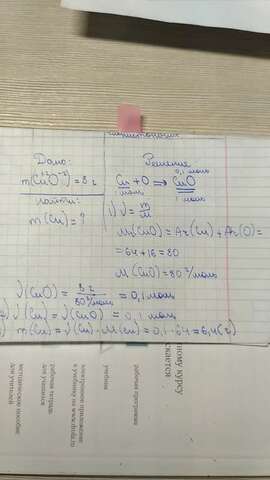 Дано:
m(Cu⁺²O⁻²) = 8 г
найти:
m(Cu) = ?
Решение:
0,1 моль
Cu + O ⇒ CuO
1 моль 1 моль
1) ν = m/M
Mr(CuO) = Ar(Cu) + Ar(O) =
= 64 + 16 = 80
M(CuO) = 80 г/моль
ν(CuO) = 8 г / 80 г/моль = 0,1 моль
ν(Cu) = ν(CuO) = 0,1 моль
m(Cu) = ν(Cu) · M(Cu) = 0,1 · 64 = 6,4 (г)
методическое пособие
для учителей
рабочая тетрадь
для учащихся
электронное приложение
к учебнику на www.drofa.ru
учебник
рабочая программа
ному курсу
скается